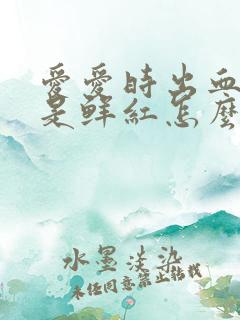 愛愛時出血
是鲜紅怎麼
水墨淡染
未经同意禁止转载